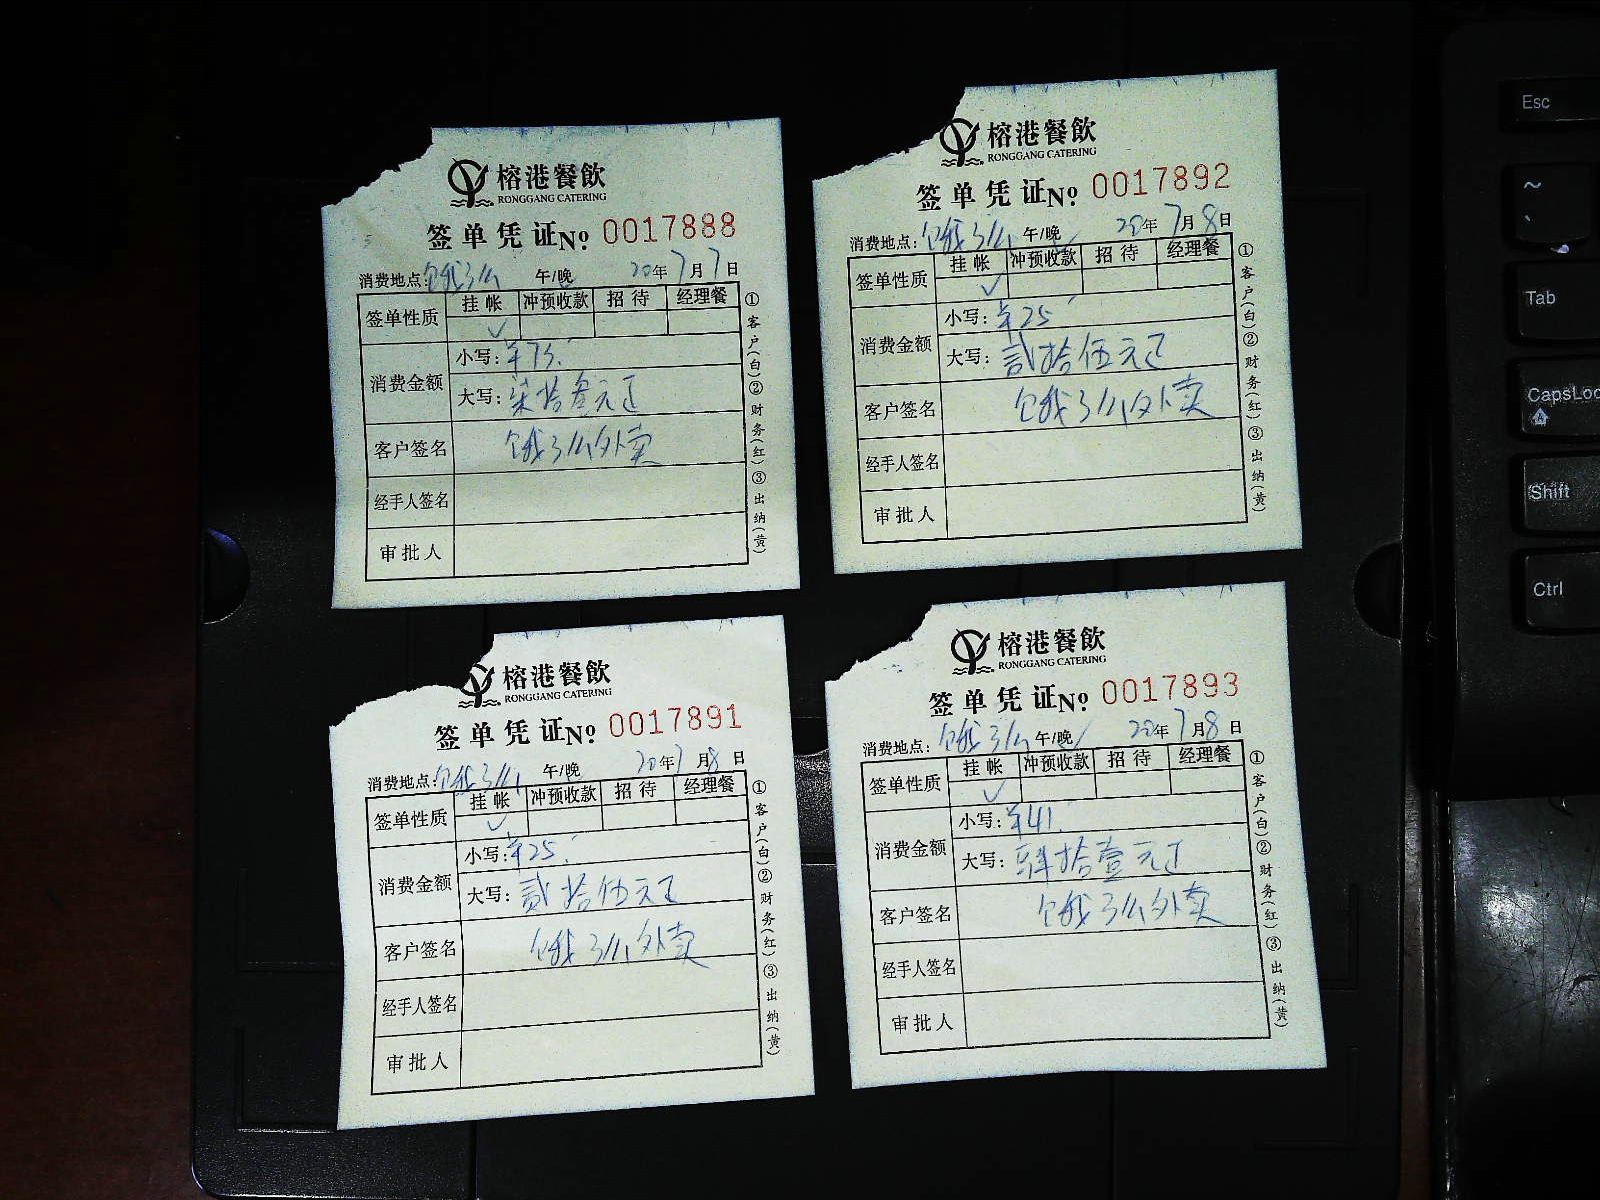 榕港餐飲
RONGGANG CATERING
签单凭证 № 0017888
消费地点: 饿了么 午/晚 20年7月7日
签单性质 挂帐 冲预收款 招待 经理餐
✓
消费金额 小写: ¥73.
大写: 柒拾叁元正
客户签名 饿了么外卖
经手人签名
审批人
①客户(白)②财务(红)③出纳(黄)
榕港餐飲
RONGGANG CATERING
签单凭证 № 0017892
消费地点: 饿了么 午/晚 20年7月8日
签单性质 挂帐 冲预收款 招待 经理餐
✓
消费金额 小写: ¥25
大写: 贰拾伍元正
客户签名 饿了么外卖
经手人签名
审批人
①客户(白)②财务(红)③出纳(黄)
榕港餐飲
RONGGANG CATERING
签单凭证 № 0017891
消费地点: 饿了么 午/晚 20年7月8日
签单性质 挂帐 冲预收款 招待 经理餐
✓
消费金额 小写: ¥25.
大写: 贰拾伍元正
客户签名 饿了么外卖
经手人签名
审批人
①客户(白)②财务(红)③出纳(黄)
榕港餐飲
RONGGANG CATERING
签单凭证 № 0017893
消费地点: 饿了么 午/晚 20年7月8日
签单性质 挂帐 冲预收款 招待 经理餐
✓
消费金额 小写: ¥41.
大写: 肆拾壹元正
客户签名 饿了么外卖
经手人签名
审批人
①客户(白)②财务(红)③出纳(黄)
Esc
~
`
Tab
CapsLoc
Shift
Ctrl